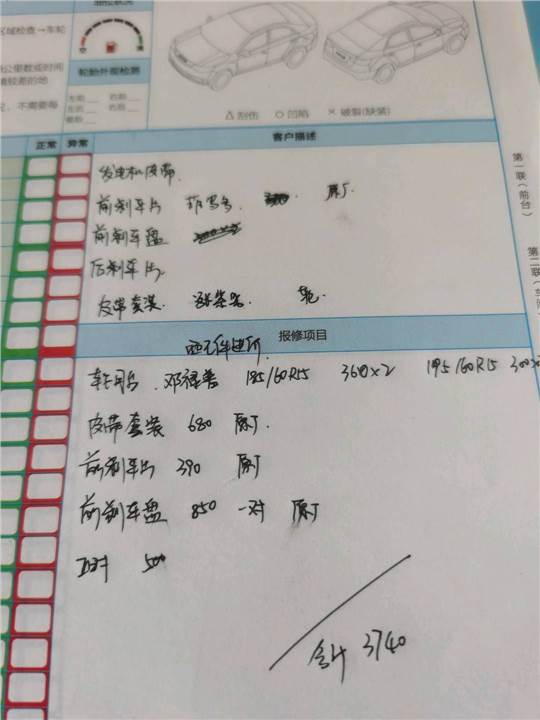 油位状况
区域检查→车轮
公里数或时间
轮胎外观检测
左前 右前
左后 右后
备胎
不需要每
△刮伤 ○凹陷 ×破裂(缺装)
正常 异常 客户描述
第一联(前台)
第二联
发电机皮带.
前刹车片 菲罗多 原厂.
前刹车盘
后刹车片.
皮带套装.
报修项目
轮胎. 邓禄普 195/60R15 360×2 195/60R15 300×
皮带套装 680 原厂.
前刹车片 390 原厂
前刹车盘 850 一对 原厂
工时 500
合计 3740